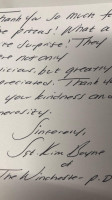 Thank you so much fo
he pizzas! What a
ice surprise! They
ere not only
icious but greatly
preciated. Thank y
your kindness and
nerosity.
Sincerely,
Sgt Kim Doyne
of
The Winchester P.D.